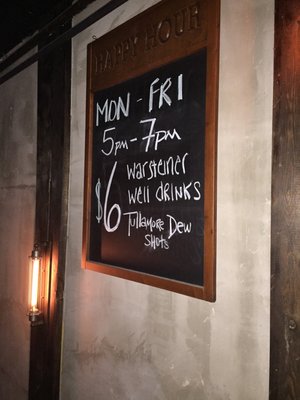 HAPPY HOUR
MON - FRI
5pm - 7pm
$6 Warsteiner
Well Drinks
Tullamore Dew
Shots